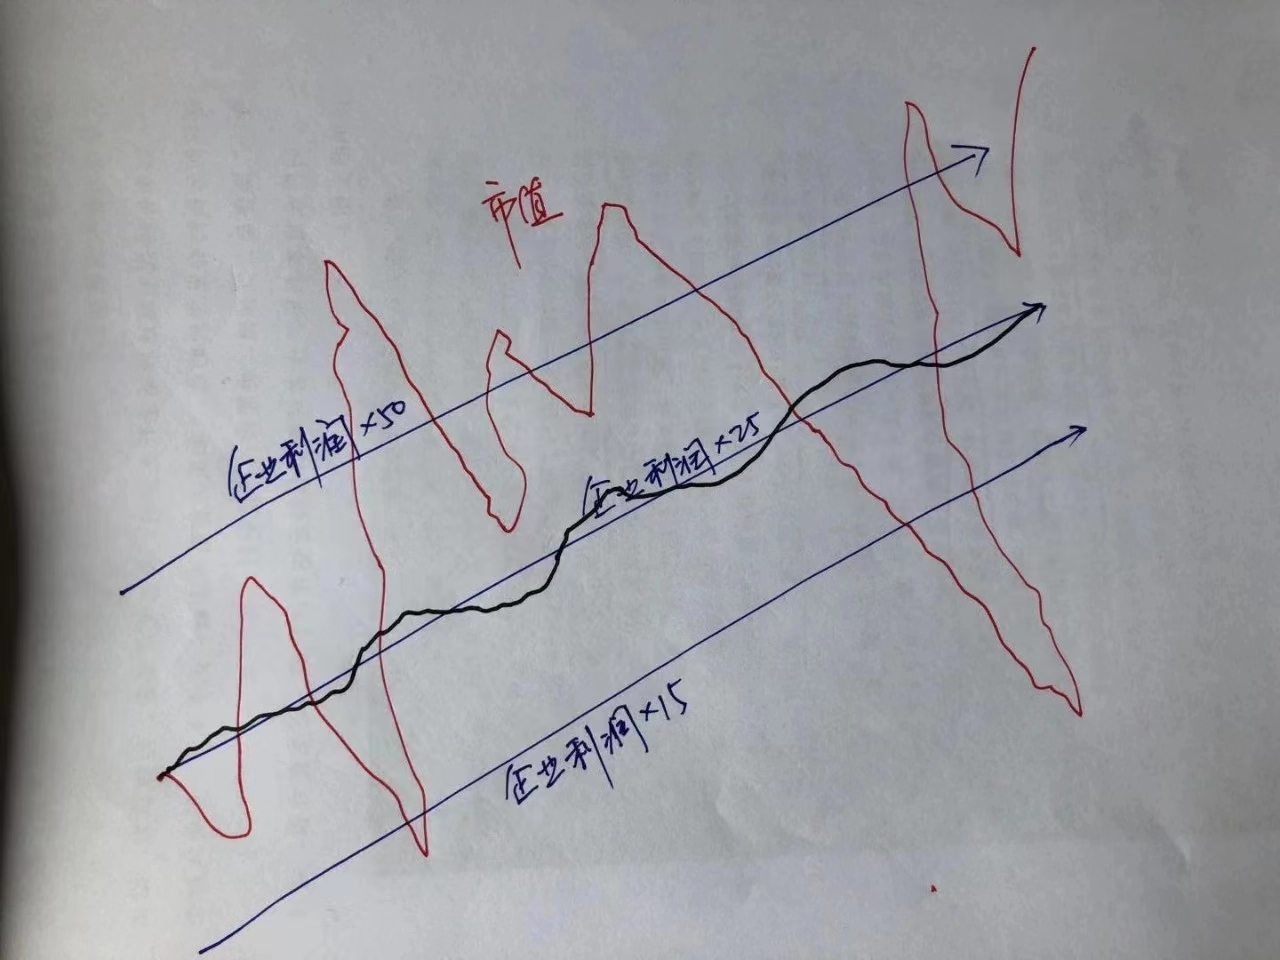 市值
企业利润×50
企业利润×25
企业利润×15